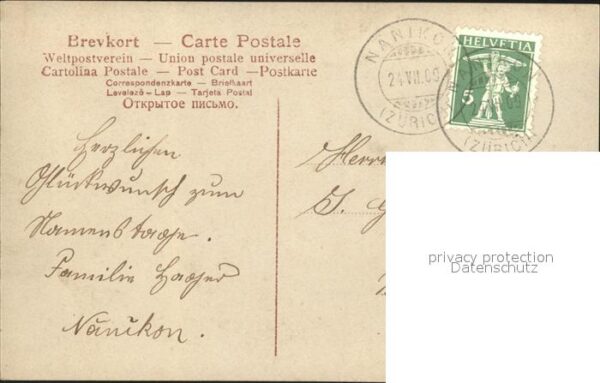 Brevkort — Carte Postale
Weltpostverein — Union postale universelle
Cartolina Postale — Post Card —Postkarte
Correspondenzkarte — Briefkaart
Levelező-Lap — Tarjeta Postal
Открытое письмо.
Herzlichen
Glückwunsch zum
Namenstage.
Familie
Nänikon.
NÄNIKON
24.VII.09
(ZÜRICH)
HELVETIA
5
(ZÜRICH)
Herrn
privacy protection
Datenschutz